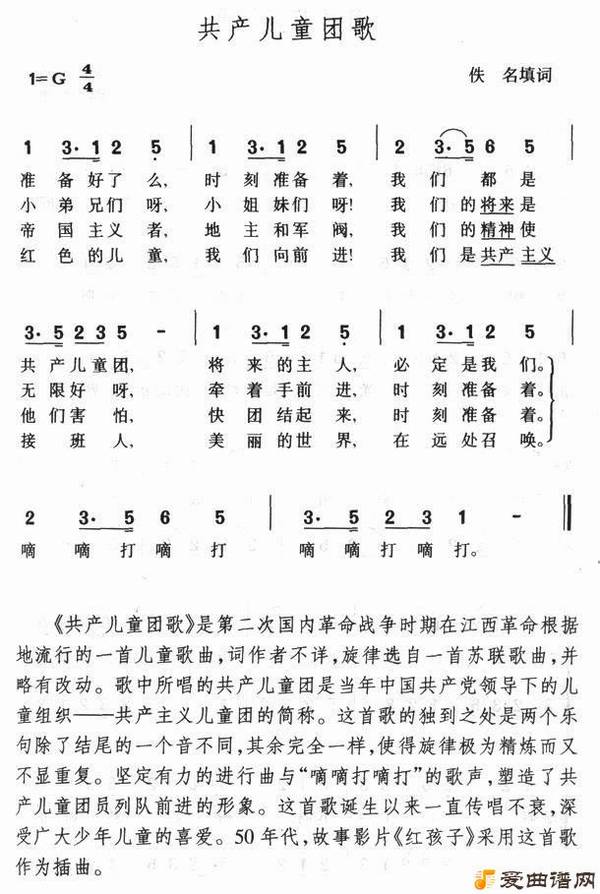 共产儿童团歌
1=G 4/4 佚 名填词
1 3·1 2 5 | 1 3·1 2 5 | 2 3·5 6 5 |
准备好了么, 时刻准备着, 我们 都是
小弟兄们呀, 小姐妹们呀! 我们的将来是
帝国主义者, 地主和军阀, 我们的精神使
红色的儿童, 我们向前进! 我们是共产主义
3·5 2 3 5 - | 1 3·1 2 5 | 1 3·1 2 5 |
共产儿童团, 将来的主人, 必定是我们。
无限好呀, 牵着手前进, 时刻准备着。
他们害怕, 快团结起来, 时刻准备着。
接班人, 美丽的世界, 在远处召唤。
2 3·5 6 5 | 3·5 2 3 1 - ‖
嘀 嘀打嘀打 嘀嘀打嘀打。
《共产儿童团歌》是第二次国内革命战争时期在江西革命根据
地流行的一首儿童歌曲,词作者不详,旋律选自一首苏联歌曲,并
略有改动。歌中所唱的共产儿童团是当年中国共产党领导下的儿
童组织——共产主义儿童团的简称。这首歌的独到之处是两个乐
句除了结尾的一个音不同,其余完全一样,使得旋律极为精炼而又
不显重复。坚定有力的进行曲与“嘀嘀打嘀打”的歌声,塑造了共
产儿童团员列队前进的形象。这首歌诞生以来一直传唱不衰,深
受广大少年儿童的喜爱。50年代,故事影片《红孩子》采用这首歌
作为插曲。
爱曲谱网